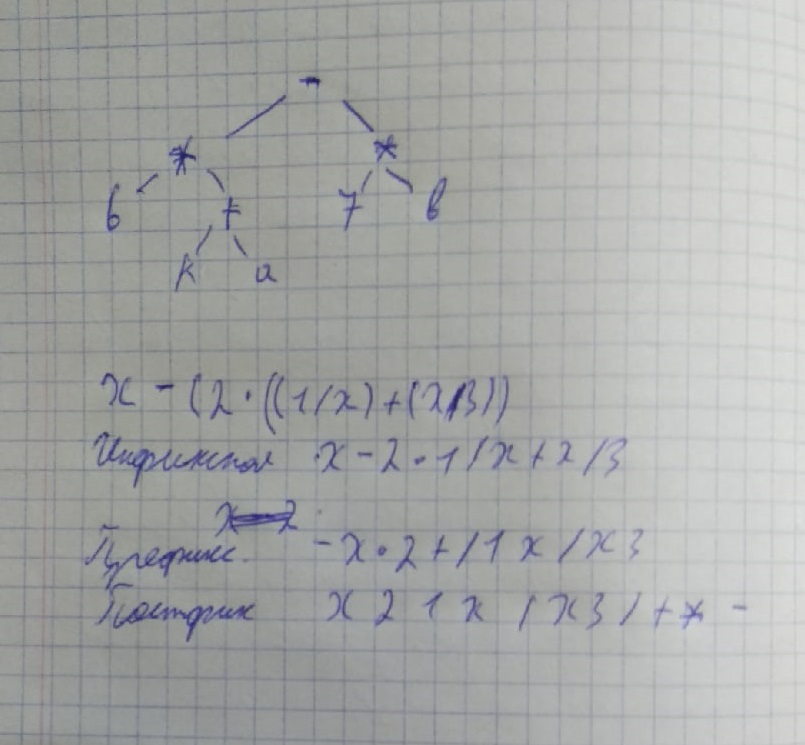 -
* *
6 + 7 в
k a
x - (2 · ((1/x) + (x/3))
Инфиксная x - 2 · 1 / x + x / 3
Префикс. - x · 2 + / 1 x / x 3
Постфик x 2 1 x / x 3 / + * -